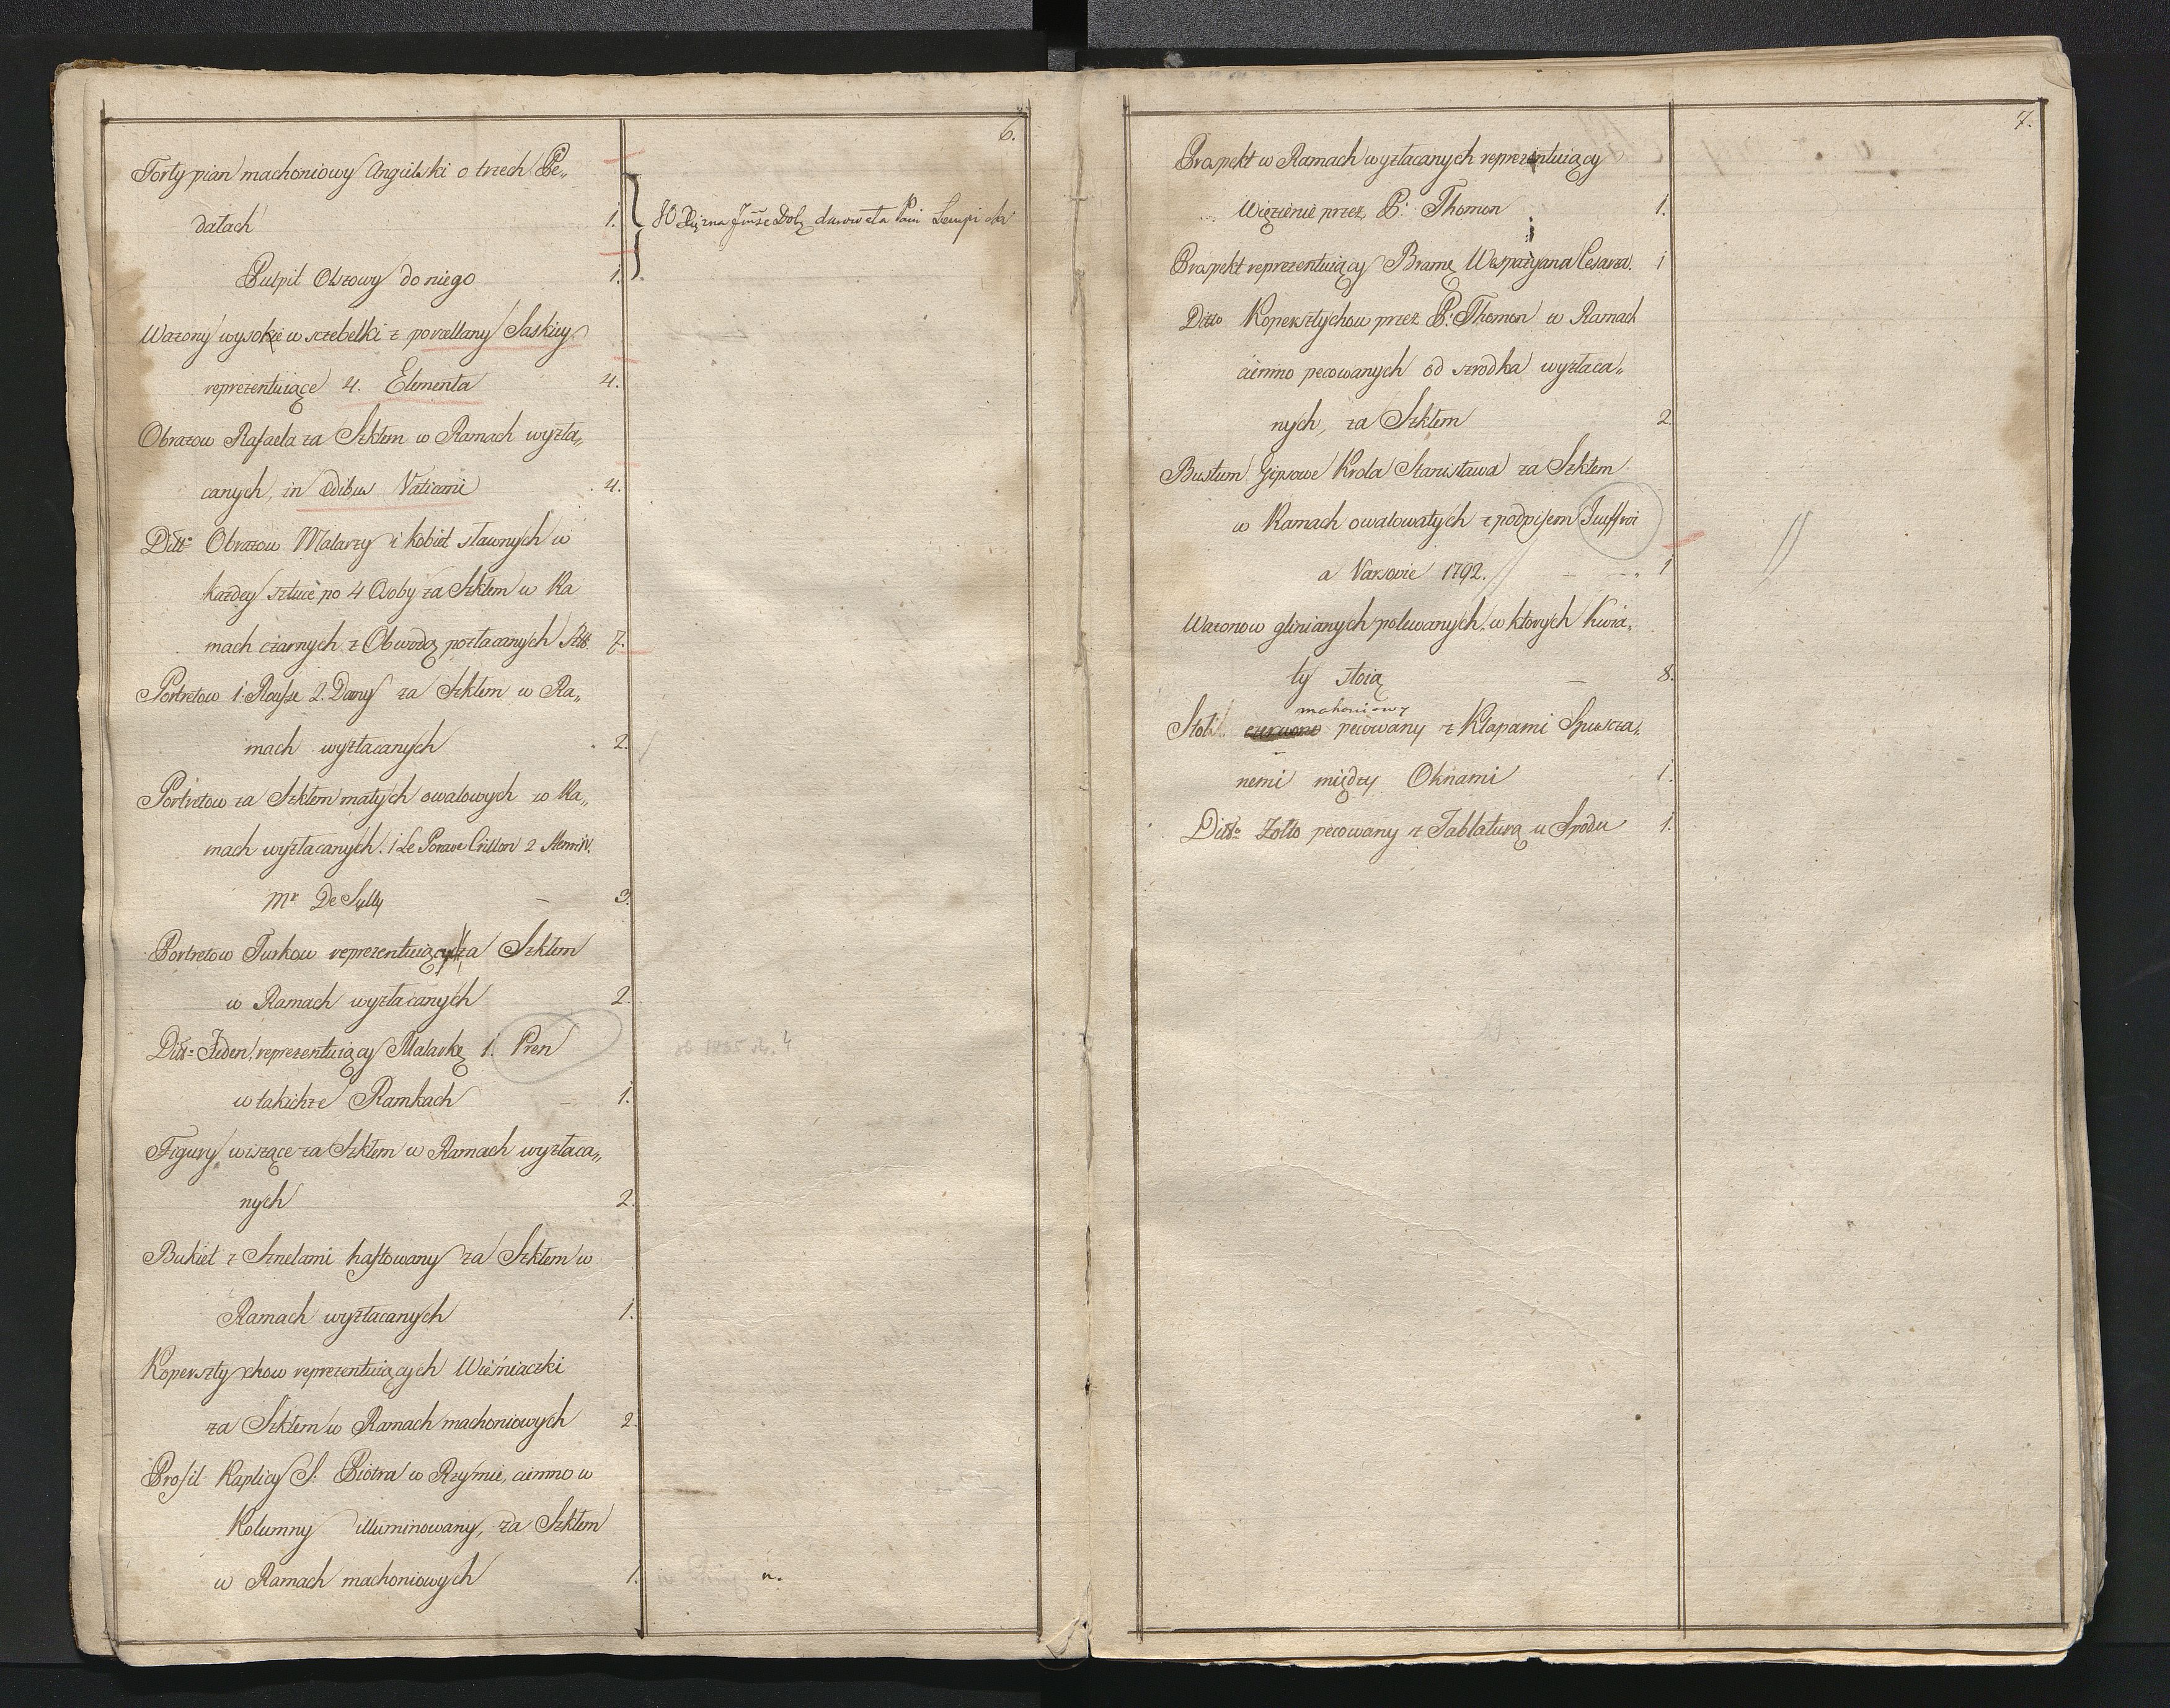 6.
Fortypian machoniowy Angielski o trzech Pe„
dałach 1.
Pulpit Olszowy do niego 1.
Xiężna Jmse darowała Pani
Wazony wysokie w szebelki z porcellany Saskiey
reprezentuiące 4. Elementa 4.
Obrazow Rafaela za Szkłem w Ramach wyzła„
canych, in Ædibus Vaticani 4.
Ditto Obrazow Malarzy i kobiet sławnych w
każdey sztuce po 4 Osoby za Szkłem w Ra
mach czarnych z Obwodą pozłacanych Sztk. 7.
Portretow 1. Rousse 2. Dany za Szkłem w Ra„
mach wyzłacanych 2.
Portretow za Szkłem małych owalowych w Ra„
mach wyzłacanych. 1 Le Porave Crillon 2 Henri IV.
Mr. De Sully – 3.
Portretow Turkow reprezentuiący za Szkłem
w Ramach wyzłacanych 2.
Ditto Jeden, reprezentuiący Malarkę 1. Pren
w takichże Ramkach – 1.
Figury wiszące za Szkłem w Ramach wyzłaca„
nych 2.
Bukiet z Sznelami haftowany za Szkłem w
Ramach wyzłacanych 1.
Koperszty chow reprezentuiących Wieśniaczki
za Szkłem w Ramach machoniowych 2.
Profil Kaplicy S: Piotra w Rzymie, ciemno w
Kolumny illuminowany, za Szkłem
w Ramach machoniowych 1.
n.
7.
Prospekt w Ramach wyzłacanych reprezentuiący
Więzienie przez P: Thomon 1.
Prospekt reprezentuiący Bramę Wespazyana Cesarza. 1
Ditto Koperszty­chow przez P: Thomon w Ramach
ciemno pecowanych od szrodka wyzłaca„
nych, za Szkłem 2
Bustum Gipsowe Krola Stanisława za Szkłem
w Ramach owalowatych z podpisem Jeuffroi
a Varsovie 1792. 1
Wazonow glinianych polewanych, w ktorych kwia„
ty stoią – 8.
machoniowy
Stolik czerwono pecowany z Klapami Spuszcza„
nemi między Oknami 1.
Ditto Zołto pecowany z Tablaturą u Spodu 1.